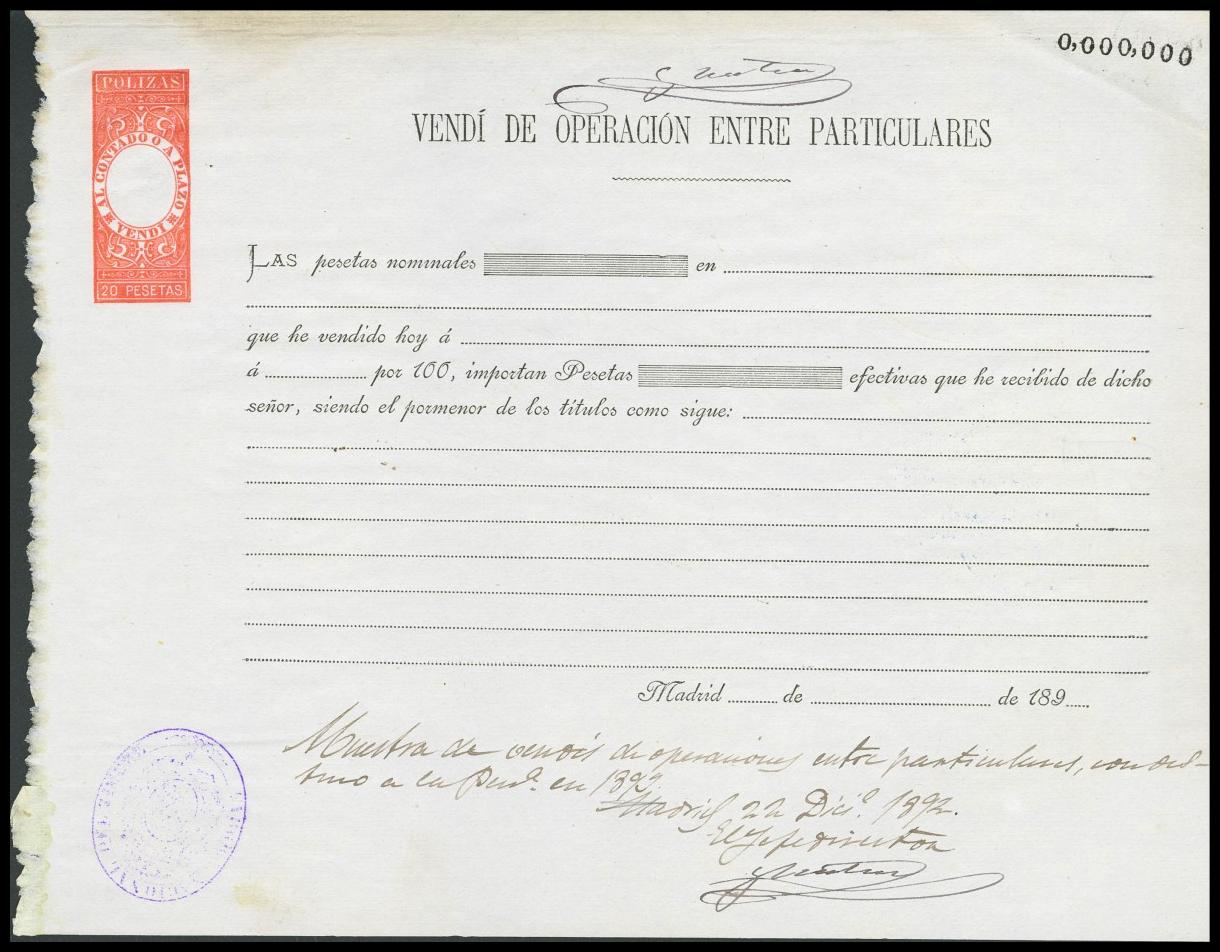 0,000,000
POLIZAS
AL CONTADO O A PLAZO
VENDI
20 PESETAS
VENDÍ DE OPERACIÓN ENTRE PARTICULARES
LAS pesetas nominales en
que he vendido hoy á
á por 100, importan Pesetas efectivas que he recibido de dicho
señor, siendo el pormenor de los títulos como sigue:
Madrid de de 189
Muestra de vendís de operaciones entre particulares, con des-
tino a la en 1892.
Madrid 22 Dic.e 1892.
El Jefe director